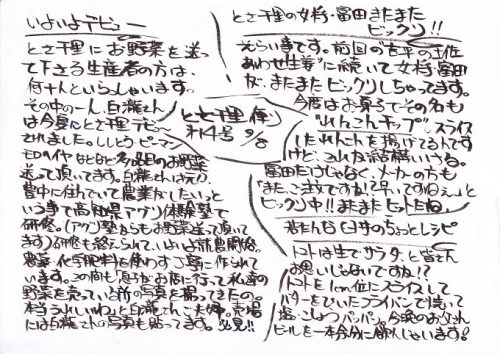 いよいよデビュー
とさ千里にお野菜を送っ
て下さる生産者の方は、
何十人といらっしゃいます。
その中の一人、白瀧さん
は今夏にとさ千里デビュー
されました。ししとう・ピーマン
モロヘイヤなどなど多品目のお野菜
送って頂いてます。白瀧さんは元々
豊中に住んでいて農業がしたいっと
いう事で高知県アグリ体験塾で
研修。(アグリ塾からもお野菜送って頂いて
ます)研修も終えられて、いよいよ就農開始。
農薬・化学肥料を使わず丁寧に作られて
います。この間も「息子がお店に行って私達の
野菜を売っている所の写真を撮ってきたの。
本当うれしいわ」と白瀧さんご夫婦。売場
には白瀧さんの写真も貼ってます。必見!!
とさ千里便り
第14号 9/8
とさ千里の女将・冨田またまた
ビックリ!!
えらい事です。前回の吉平の
あわせ生姜に続いて女将・冨田
が、またまたビックリしちゃってます。
今度はお菓子でその名も
"れんこんチップ"スライス
したれんこんを揚げてるんです
けど、これが結構いける。
冨田だけじゃなく、メーカの方も
「また、ご注文ですね!?早いですねぇ」と
ビックリ中!!またまたヒットだね
トマトは生でサラダ、と皆さん
お思いじゃないですね!?
トマトを1cm位にスライスして
バターをひいたフライパンで焼いて
塩・こしょうパッパッ。今晩のお父さん
ビールを一本余分に飲んじゃいます!